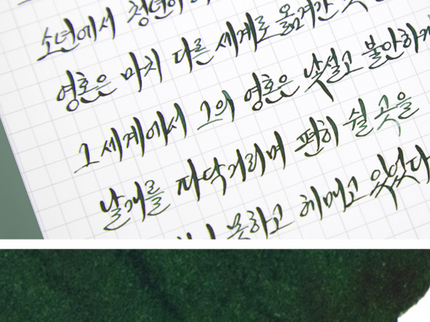 소년에서 청년이
영혼은 마치 다른 세계로 옮겨간
그 세계에서 그의 영혼은 낯설고 불안하게
날개를 파닥거리며 편히 쉴 곳을
못하고 헤매고 있었다